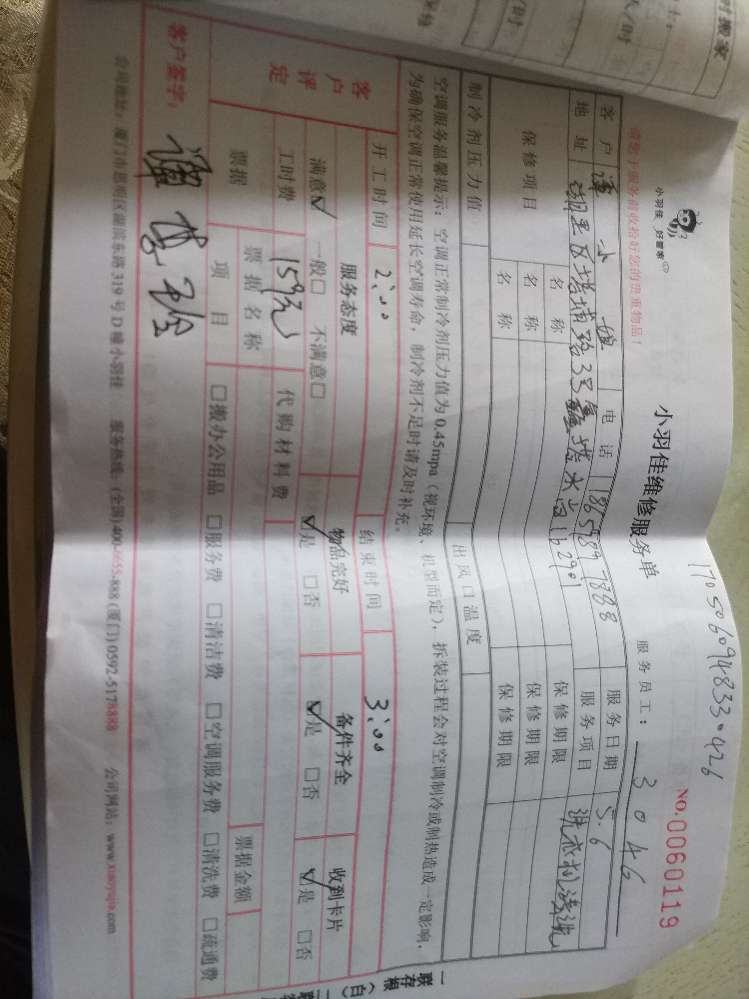 时搬家
人/时
/时
小羽佳 好管家
请您于服务前收拾好您的贵重物品!
小羽佳维修服务单
1705060948330426
NO.0060119
服务员工: 3046
客户 谭小姐 电话 18659897888 服务日期 5.6
地址 湖里区塔埔路3号鑫塔水尚1b2901 服务项目 洗衣机清洗
保修项目 名称 保修期限
名称 保修期限
名称 保修期限
制冷剂压力值 出风口温度
空调服务温馨提示: 空调正常制冷剂压力值为0.45mpa(视环境、机型而定), 拆装过程会对空调制冷或制热造成一定影响,
为确保空调正常使用延长空调寿命, 制冷剂不足时请及时补充。
开工时间 2:00 结束时间 3:00
客户评定 服务态度 物品完好 备件齐全 收到卡片
满意☑ 一般□ 不满意□ ☑是 □否 ☑是 □否 ☑是 □否
工时费 159元 代购材料费
票据 票据名称 票据金额
项目 □搬办公用品 □服务费 □清洁费 □空调服务费 □清洗费 □疏通费
客户签字: 谭
公司地址: 厦门市思明区湖滨东路319号D幢小羽佳 服务热线: (全国)400-6655-888 (厦门) 0592-5178888 公司网站: www.xiaoyujia.com
一联存根(白)